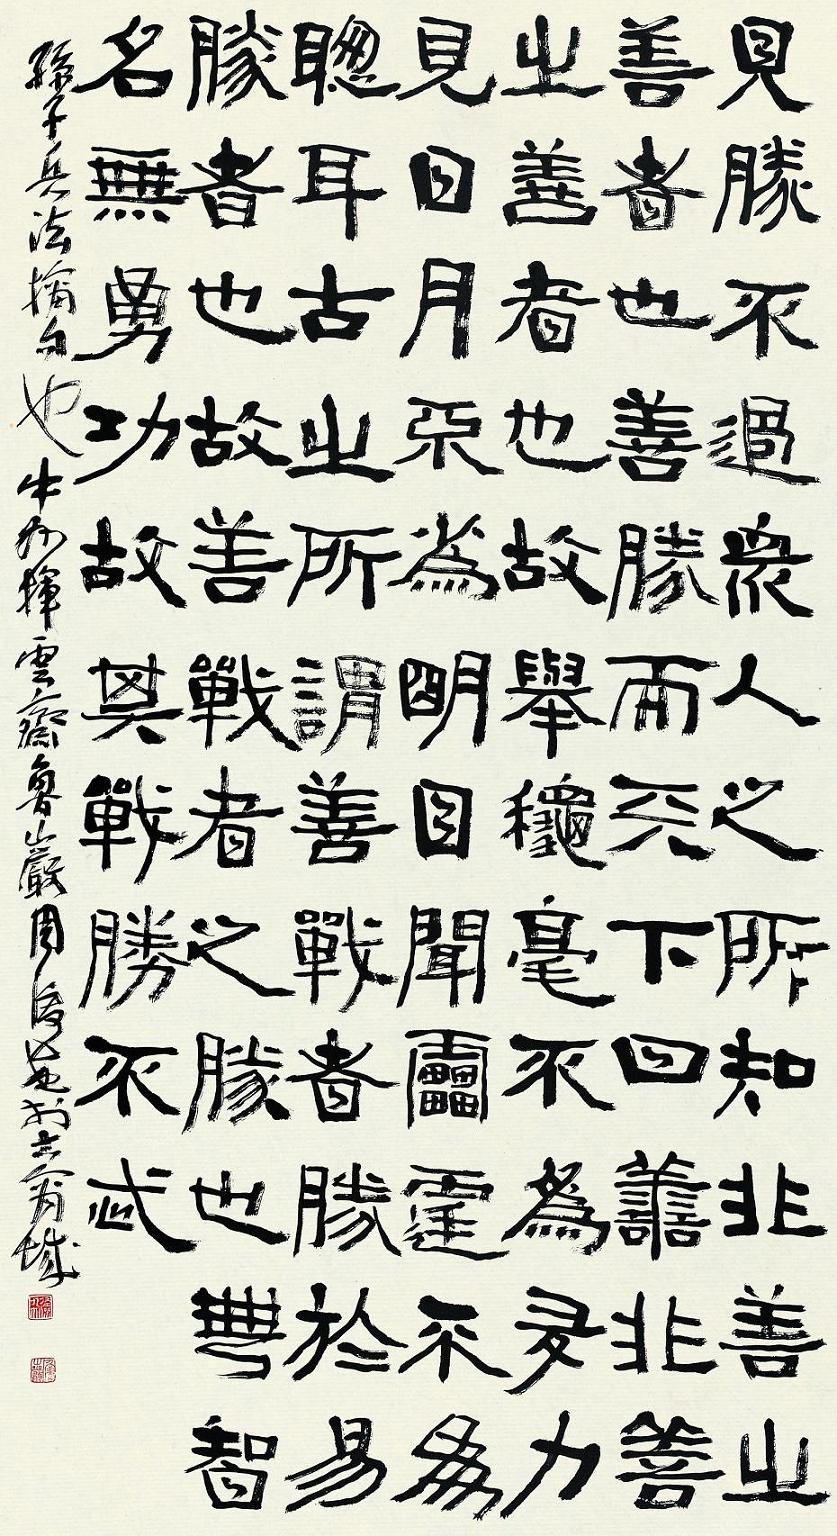 見勝不過衆人之所知非善之
善者也善勝而天下曰譱非善
之善者也故舉龝毫不為多力
見日月不為明目聞靁霆不為
聰耳古之所謂善戰者勝於易
勝者也故善戰者之勝也無智
名無勇功故其戰勝不忒
孫子兵法摘句也牛揮雲齋魯山巖周於古宛城